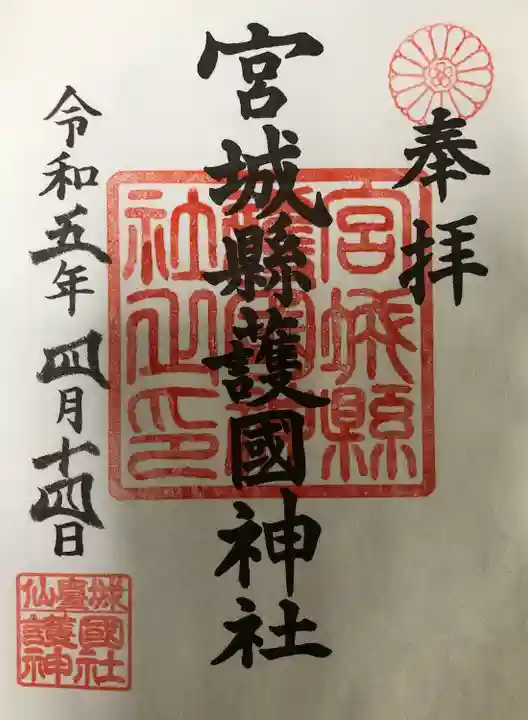 奉拝
宮城縣護國神社
令和五年 四月十四日
宮城縣
護國神
社之印
仙臺城
護國
神社